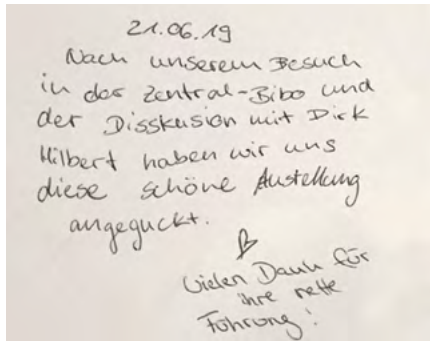 21.06.19
Nach unserem Besuch
in der Zentral-Bibo und
der Disskusion mit Dirk
Hilbert haben wir uns
diese schöne Austellung
angeguckt.
Vielen Dank für
ihre nette
Führung!